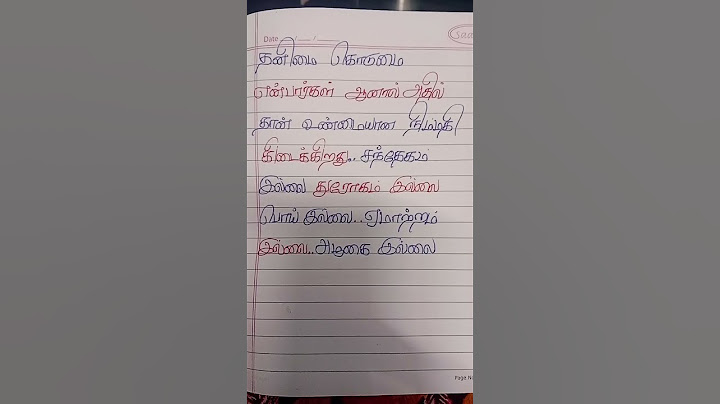 Date / /
தனிமை கொடுமை
என்பார்கள் ஆனால் அதில்
தான் உண்மையான நிம்மதி
கிடைக்கிறது.. சந்தேகம்
இல்லை துரோகம் இல்லை
பொய் இல்லை.. ஏமாற்றம்
இல்லை.. அழுகை இல்லை
Page No